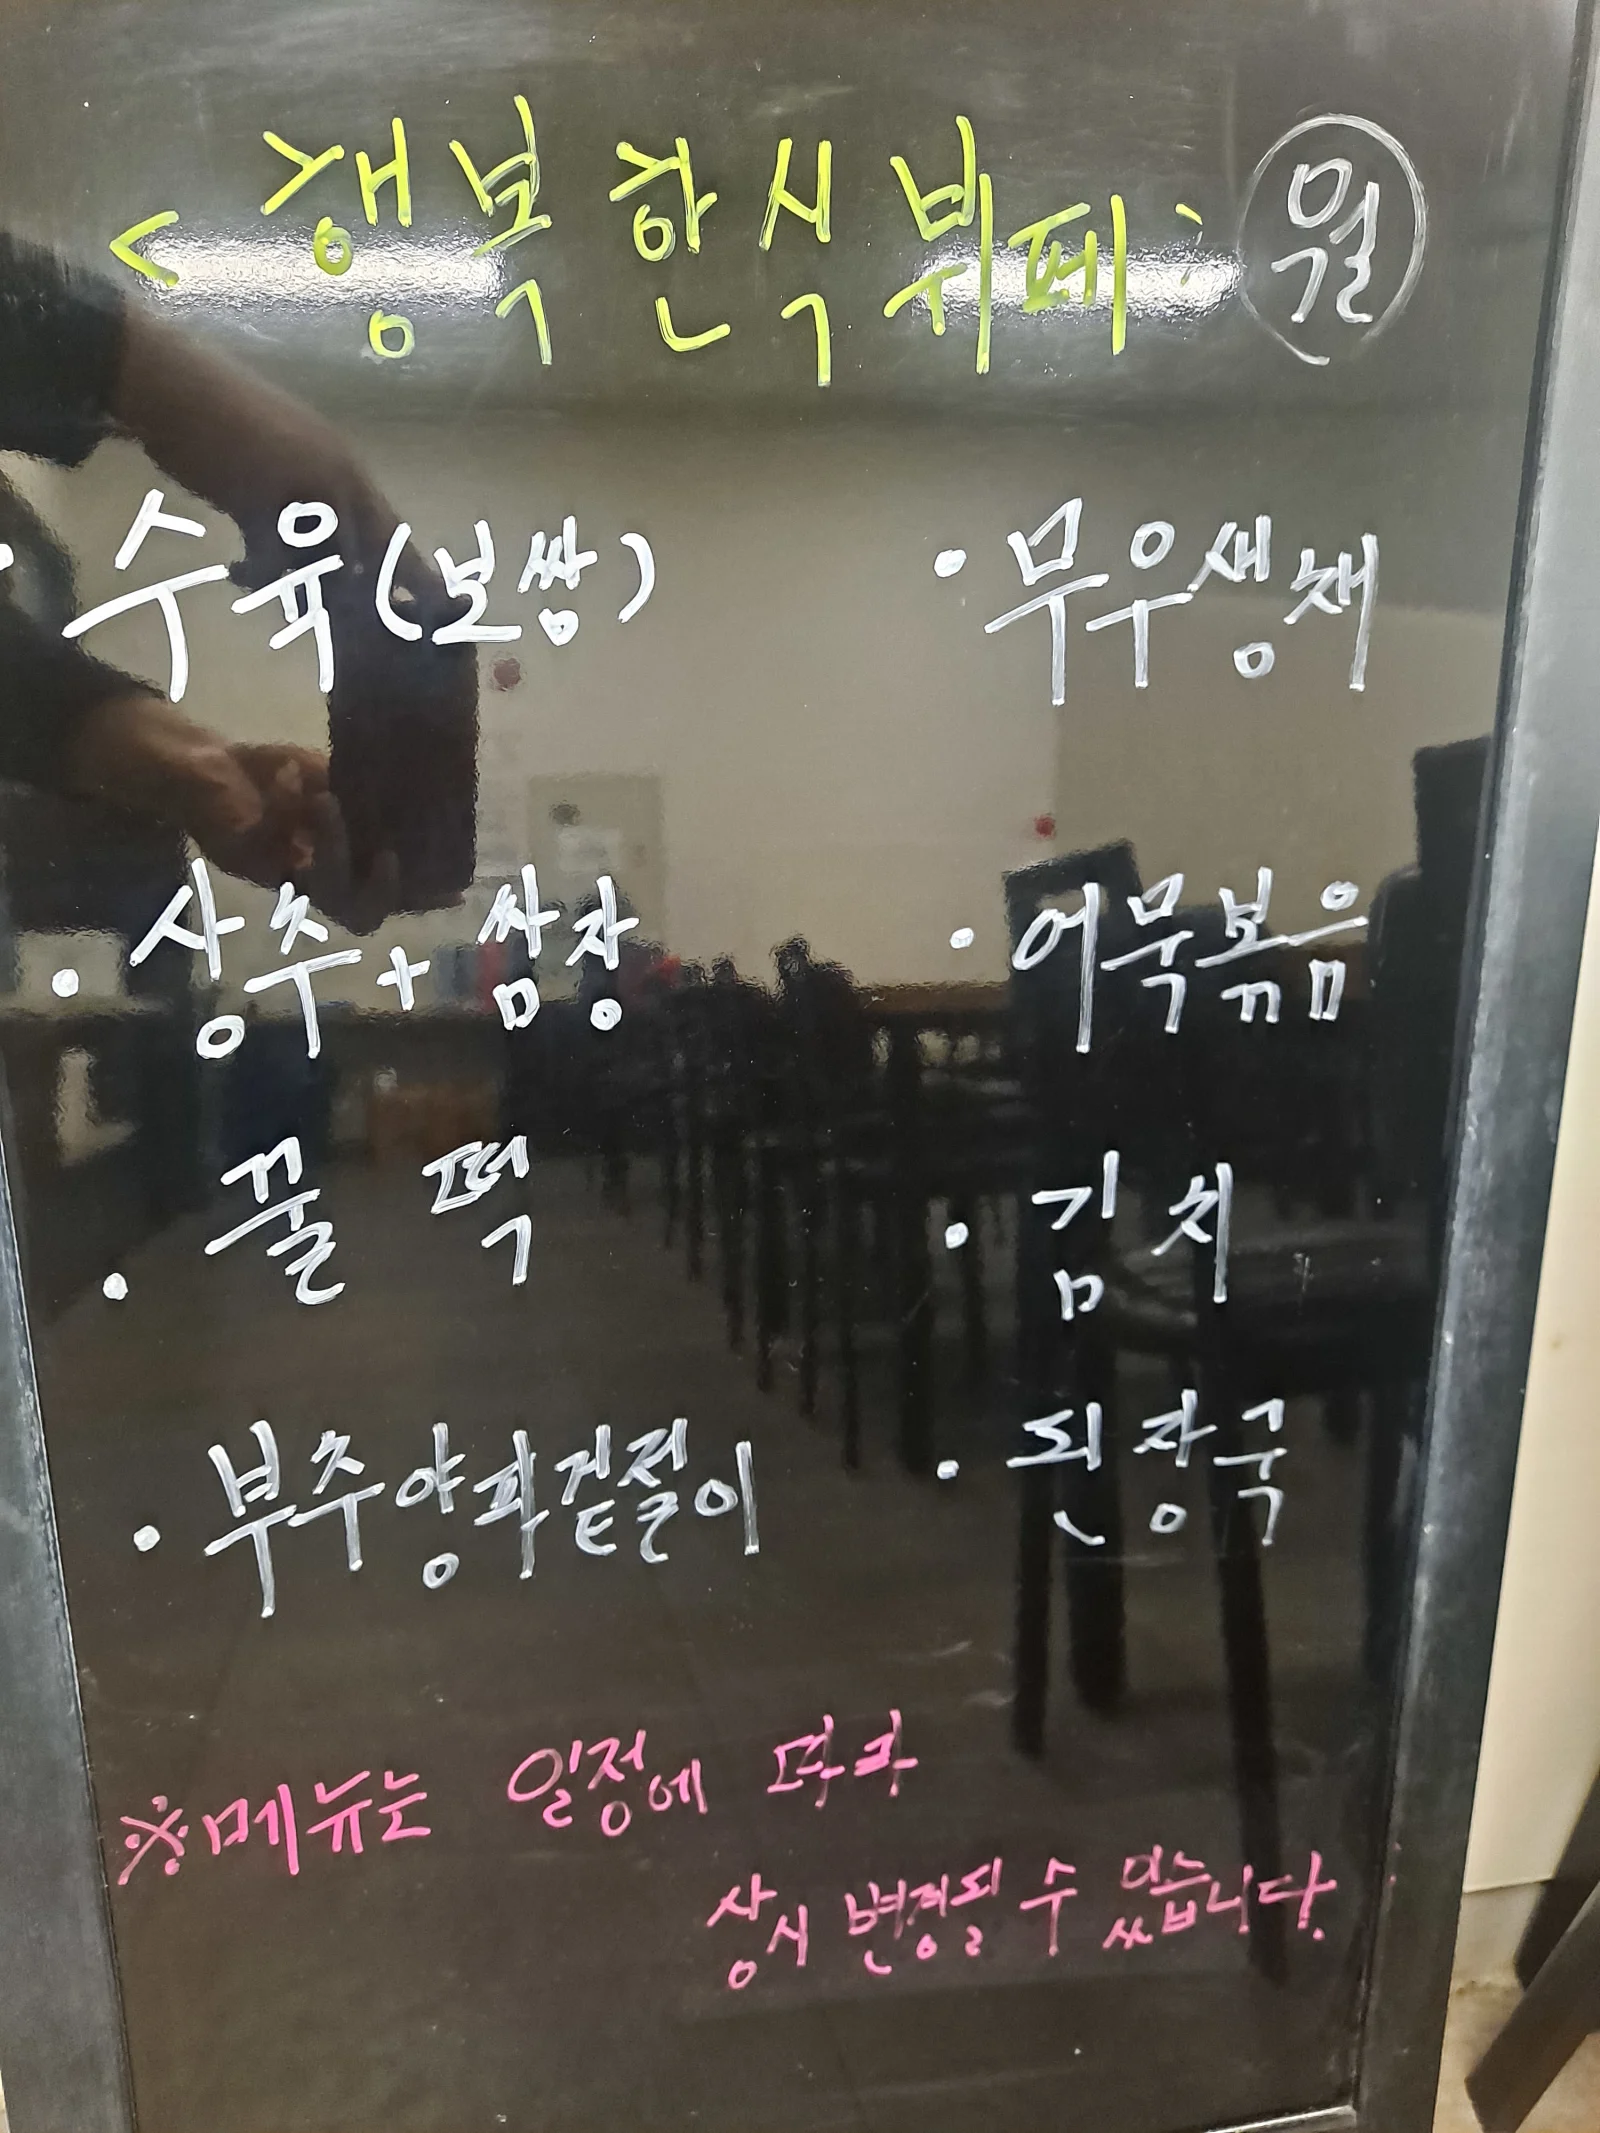 < 행복한식뷔페 : 월
· 수육(보쌍)
· 상추 + 쌈장
· 꿀떡
· 부추양파겉절이
· 무우생채
· 어묵볶음
· 김치
· 된장국
※메뉴는 일정에 따라
상시 변경될 수 있습니다.